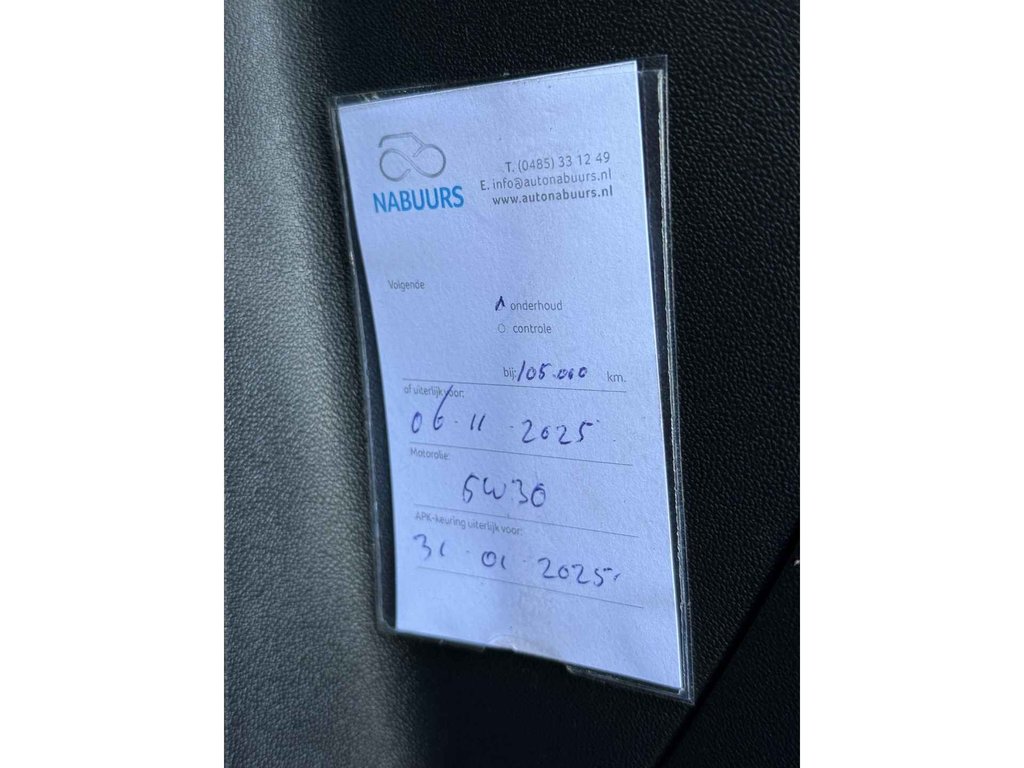 NABUURS
T. (0485) 33 12 49
E. info@autonabuurs.nl
www.autonabuurs.nl
Volgende
onderhoud
controle
bij: 105.000 km.
of uiterlijk voor:
06-11-2025
Motorolie:
5W30
APK-keuring uiterlijk voor:
31-01-2025